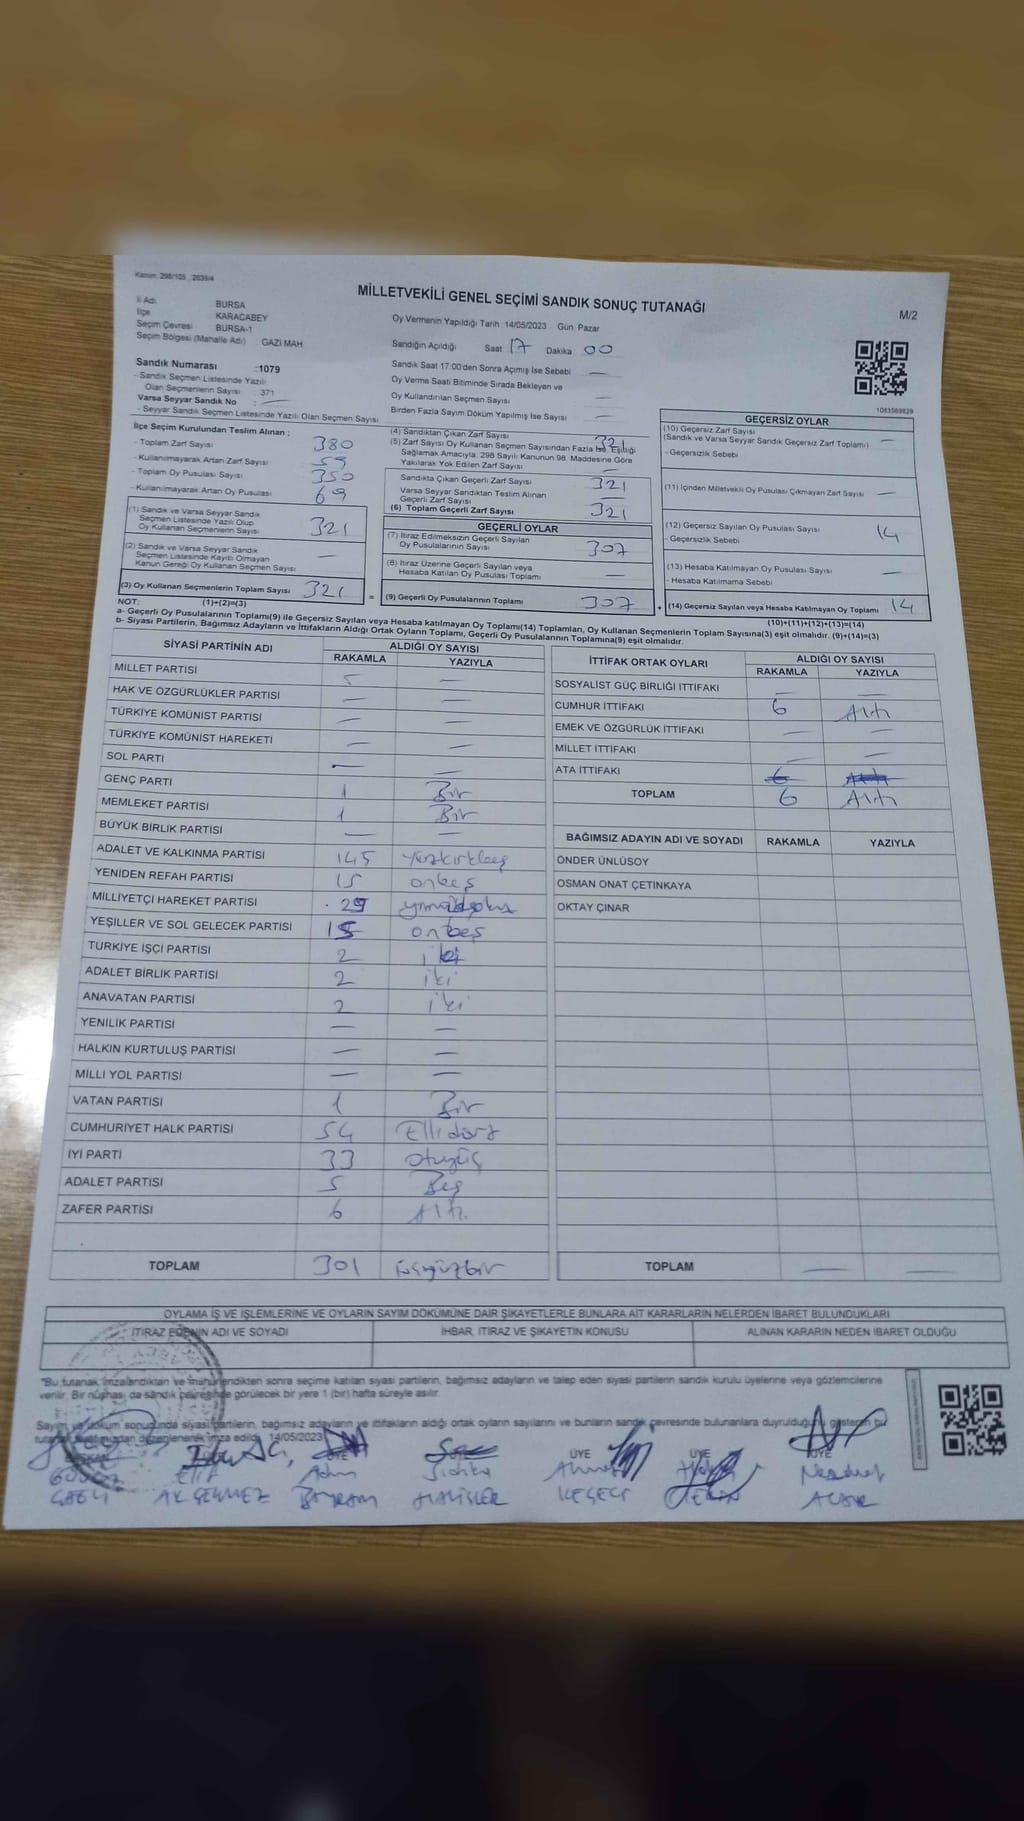 Kanun: 298/105 , 2839/4
MİLLETVEKİLİ GENEL SEÇİMİ SANDIK SONUÇ TUTANAĞI
M/2
İl Adı BURSA
İlçe KARACABEY
Seçim Çevresi BURSA-1
Seçim Bölgesi (Mahalle Adı) : GAZİ MAH
Oy Vermenin Yapıldığı Tarih :14/05/2023 Gün: Pazar
Sandığın Açıldığı Saat 17 Dakika 00
Sandık Numarası :1079
- Sandık Seçmen Listesinde Yazılı
Olan Seçmenlerin Sayısı : 371
Varsa Seyyar Sandık No : —
- Seyyar Sandık Seçmen Listesinde Yazılı Olan Seçmen Sayısı
Sandık Saat 17:00'den Sonra Açımış İse Sebebi —
Oy Verme Saati Bitiminde Sırada Bekleyen ve
Oy Kullandırılan Seçmen Sayısı —
Birden Fazla Sayım Döküm Yapılmış İse Sayısı —
1083569829
İlçe Seçim Kurulundan Teslim Alınan ;
- Toplam Zarf Sayısı 380
- Kullanılmayarak Artan Zarf Sayısı 59
- Toplam Oy Pusulası Sayısı 350
- Kullanılmayarak Artan Oy Pusulası 69
(1) Sandık ve Varsa Seyyar Sandık
Seçmen Listesinde Yazılı Olup
Oy Kullanan Seçmenlerin Sayısı 321
(2) Sandık ve Varsa Seyyar Sandık
Seçmen Listesinde Kayıtlı Olmayan
Kanun Gereği Oy Kullanan Seçmen Sayısı —
(3) Oy Kullanan Seçmenlerin Toplam Sayısı 321 =
(4) Sandıktan Çıkan Zarf Sayısı 321
(5) Zarf Sayısı Oy Kullanan Seçmen Sayısından Fazla İse Eşitliği
Sağlamak Amacıyla, 298 Sayılı Kanunun 98. Maddesine Göre
Yakılarak Yok Edilen Zarf Sayısı —
Sandıkta Çıkan Geçerli Zarf Sayısı 321
Varsa Seyyar Sandıktan Teslim Alınan
Geçerli Zarf Sayısı —
(6) Toplam Geçerli Zarf Sayısı 321
GEÇERLİ OYLAR
(7) İtiraz Edilmeksizin Geçerli Sayılan
Oy Pusulalarının Sayısı 307
(8) İtiraz Üzerine Geçerli Sayılan veya
Hesaba Katılan Oy Pusulası Toplamı —
(9) Geçerli Oy Pusulalarının Toplamı 307 +
GEÇERSİZ OYLAR
(10) Geçersiz Zarf Sayısı
(Sandık ve Varsa Seyyar Sandık Geçersiz Zarf Toplamı) —
- Geçersizlik Sebebi
(11) İçinden Milletvekili Oy Pusulası Çıkmayan Zarf Sayısı —
(12) Geçersiz Sayılan Oy Pusulası Sayısı 14
- Geçersizlik Sebebi
(13) Hesaba Katılmayan Oy Pusulası Sayısı —
- Hesaba Katılmama Sebebi
(14) Geçersiz Sayılan veya Hesaba Katılmayan Oy Toplamı 14
NOT: (1)+(2)=(3) (10)+(11)+(12)+(13)=(14)
a- Geçerli Oy Pusulalarının Toplamı(9) ile Geçersiz Sayılan veya Hesaba katılmayan Oy Toplamı(14) Toplamları, Oy Kullanan Seçmenlerin Toplam Sayısına(3) eşit olmalıdır. (9)+(14)=(3)
b- Siyasi Partilerin, Bağımsız Adayların ve İttifakların Aldığı Ortak Oyların Toplamı, Geçerli Oy Pusulalarının Toplamına(9) eşit olmalıdır.
SİYASİ PARTİNİN ADI ALDIĞI OY SAYISI
RAKAMLA YAZIYLA
MİLLET PARTİSİ —
HAK VE ÖZGÜRLÜKLER PARTİSİ — —
TÜRKİYE KOMÜNİST PARTİSİ — —
TÜRKİYE KOMÜNİST HAREKETİ — —
SOL PARTİ — —
GENÇ PARTİ 1 Bir
MEMLEKET PARTİSİ 1 Bir
BÜYÜK BİRLİK PARTİSİ — —
ADALET VE KALKINMA PARTİSİ 145 yüzkırkbeş
YENİDEN REFAH PARTİSİ 15 onbeş
MİLLİYETÇİ HAREKET PARTİSİ 29 yirmidokuz
YEŞİLLER VE SOL GELECEK PARTİSİ 15 onbeş
TÜRKİYE İŞÇİ PARTİSİ 2 iki
ADALET BİRLİK PARTİSİ 2 iki
ANAVATAN PARTİSİ 2 iki
YENİLİK PARTİSİ — —
HALKIN KURTULUŞ PARTİSİ — —
MİLLİ YOL PARTİSİ — —
VATAN PARTİSİ 1 Bir
CUMHURİYET HALK PARTİSİ 54 Ellidört
İYİ PARTİ 33 otuzüç
ADALET PARTİSİ 5 Beş
ZAFER PARTİSİ 6 Altı
TOPLAM 301 üçyüzbir
İTTİFAK ORTAK OYLARI ALDIĞI OY SAYISI
RAKAMLA YAZIYLA
SOSYALİST GÜÇ BİRLİĞİ İTTİFAKI — —
CUMHUR İTTİFAKI 6 Altı
EMEK VE ÖZGÜRLÜK İTTİFAKI — —
MİLLET İTTİFAKI — —
ATA İTTİFAKI 6 Altı
TOPLAM 6 Altı
BAĞIMSIZ ADAYIN ADI VE SOYADI RAKAMLA YAZIYLA
ÖNDER ÜNLÜSOY
OSMAN ONAT ÇETİNKAYA
OKTAY ÇINAR
TOPLAM — —
OYLAMA İŞ VE İŞLEMLERİNE VE OYLARIN SAYIM DÖKÜMÜNE DAİR ŞİKAYETLERLE BUNLARA AİT KARARLARIN NELERDEN İBARET BULUNDUKLARI
İTİRAZ EDENİN ADI VE SOYADI İHBAR, İTİRAZ VE ŞİKAYETİN KONUSU ALINAN KARARIN NEDEN İBARET OLDUĞU
*Bu tutanak imzalandıktan ve mühürlendikten sonra seçime katılan siyasi partilerin, bağımsız adayların ve talep eden siyasi partilerin sandık kurulu üyelerine veya gözlemcilerine
verilir. Bir nüshası da sandık çevresinde görülecek bir yere 1 (bir) hafta süreyle asılır.
Sayım ve döküm sonucunda siyasi partilerin, bağımsız adayların ve ittifakların aldığı ortak oyların sayılarını ve bunların sandık çevresinde bulunanlara duyrulduğunu gösteren bu
tutanak düzenlenerek imza edildi. 14/05/2023
ÜYE ÜYE ÜYE
Elif Adem Sıdıka Ahmet Necdet
AKSEKMEZ BAYRAM KEÇECİ ACAR